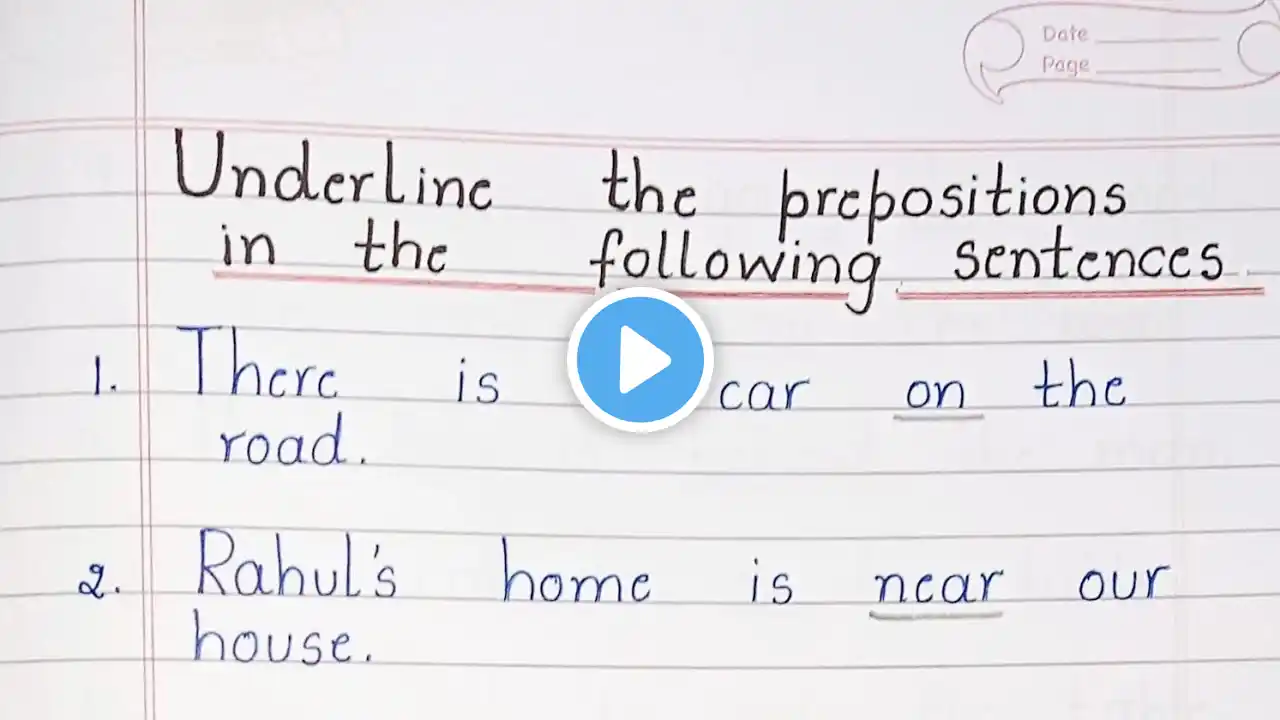 Date
Page
Underline the prepositions
in the following sentences
1. There is car on the
road.
2. Rahul's home is near our
house.